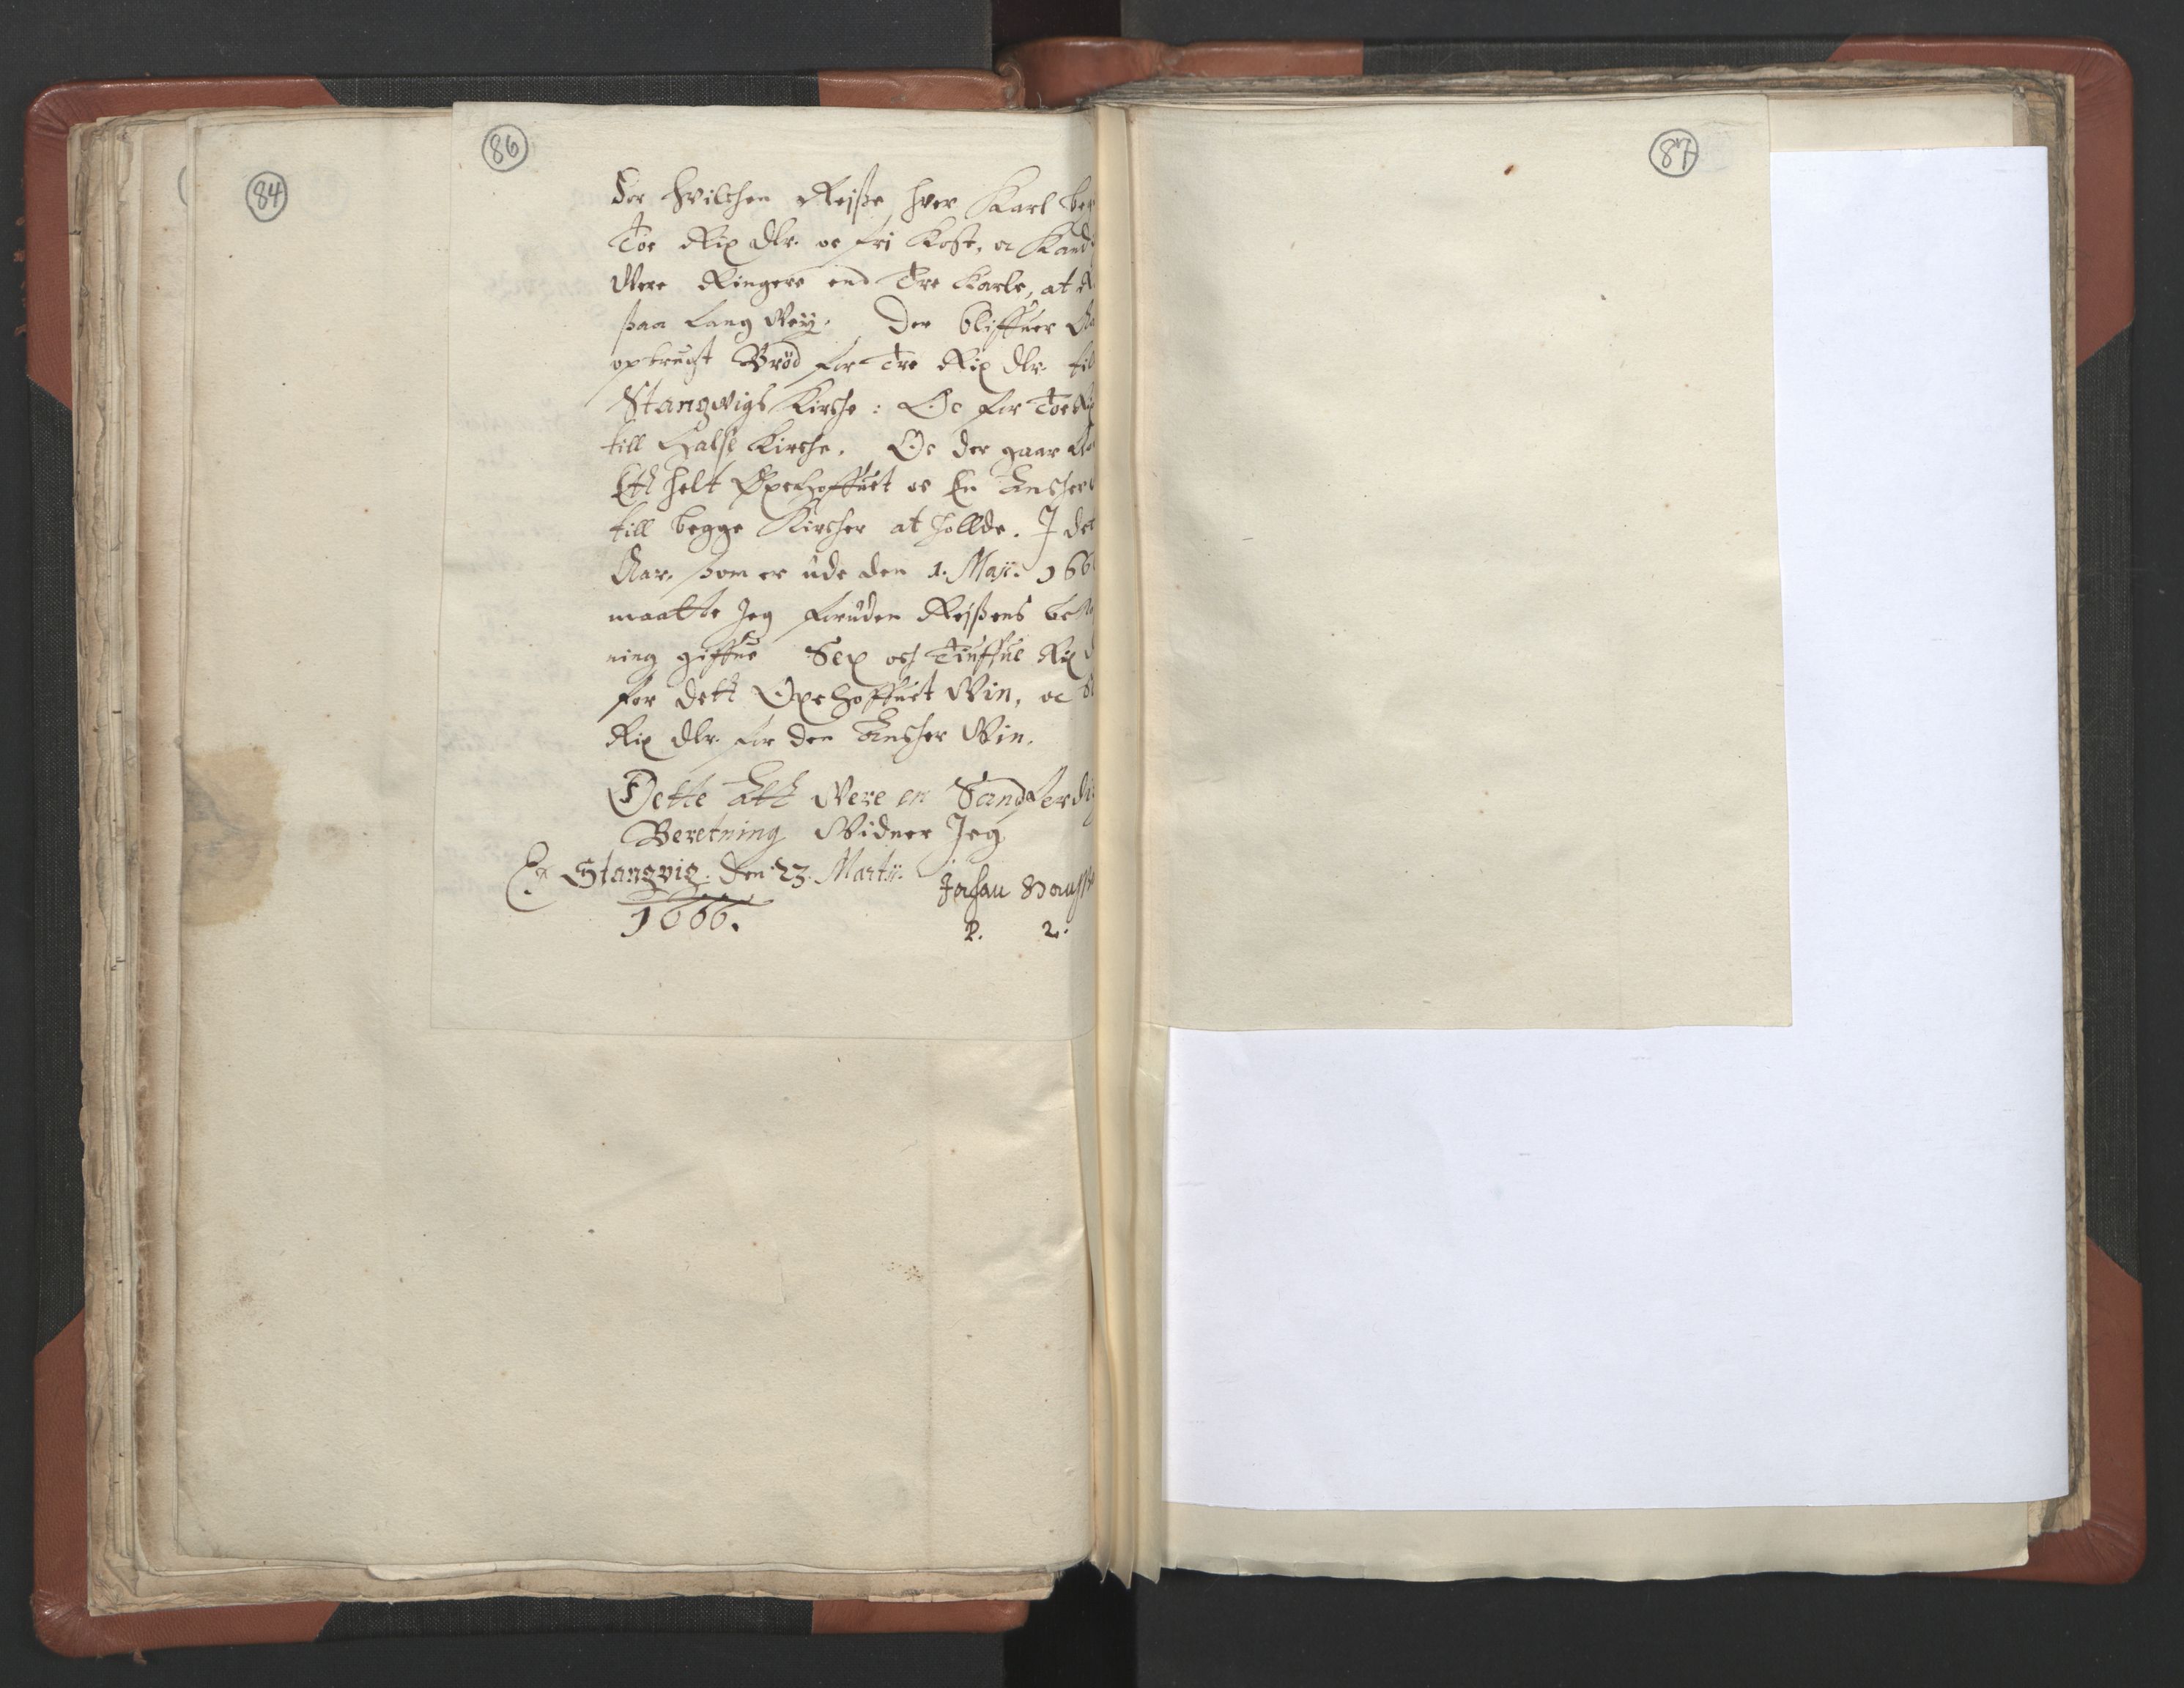 84
86
87
For Hvilchen Rejsse, hver Karl beg
Toe Rix dlr. oc fri Kost, oc Kand
Were Ringere end Tre Karle, at
saa lang Wey. Der bliffuer
optrugt Brød for Tre Rix dlr. till
Stangvigs Kirche: Oc for Toe Rix
till Halse Kirche. Oc der gaar
Ett helt Oxehoffuet oc En Ancher
till begge Kircher at hollde. J det
Aar, som er ude den 1. Maji. 166
maatte Jeg foruden Rejssens be
ning giffue Sex och Tiuffue Rix d
for dett Oxehoffuet Win, oc
Rix dlr. for den Ancher Win.
Dette att Were en Sandferdig
Beretning Widner Jeg
Ex Stangvig. den 23. Martii.
1666.